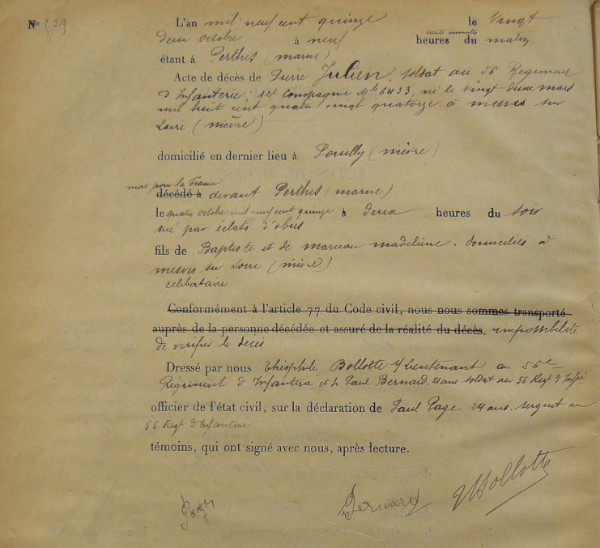 No 129
L'an mil neuf cent quinze le Vingt
deux octobre à neuf heures trente minutes du matin
étant à Perthes (marne)
Acte de décès de Pierre Julien, soldat au 56 Régiment
d'Infanterie, 12e Compagnie Mle 6433, né le vingt deux mars
mil huit cent quatre vingt quatorze à mesves sur
Loire (nièvre)
domicilié en dernier lieu à Pouilly (nièvre)
mort pour la France
décédé à devant Perthes (marne)
le quatre octobre mil neuf cent quinze à deux heures du soir
tué par éclats d'obus
fils de Baptiste et de marceau madeleine. domiciliés à
mesves sur Loire (nièvre)
célibataire
Conformément à l'article 77 du Code civil, nous nous sommes transporté
auprès de la personne décédée et assuré de la réalité du décès, impossibilité
de vérifier le décès
Dressé par nous Théophile Bollotte s/lieutenant au 56e
Régiment d'Infanterie et de Paul Bernard ans soldat au 56 Regt d'Infie
officier de l'état civil, sur la déclaration de Paul Page. 24 ans. sergent au
56 Regt d'Infanterie
témoins, qui ont signé avec nous, après lecture.
Page Bernard Bollotte